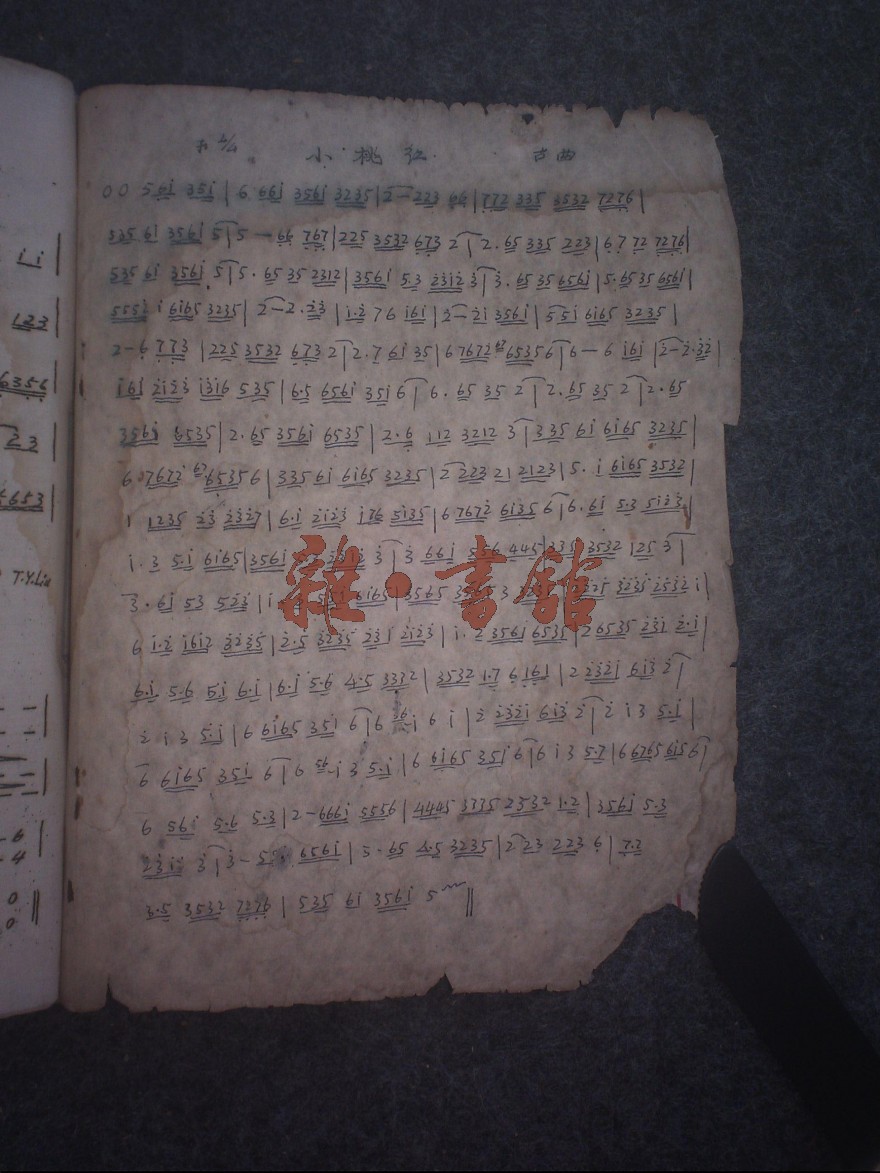 4/4 小桃红 古曲
0 0 5 6i 35i | 6 66i 356i 3235 | 2 - 223 66 | 772 335 3532 7276 |
535 6i 356i 5 | 5 - 66 767 | 225 3532 673 2 | 2. 65 335 223 | 6 7 72 7276 |
535 6i 356i 5 | 5. 65 35 2312 | 356i 5.3 2312 3 | 3. 65 35 656i | 5. 65 35 656i |
i 6i65 3235 | 2 - 2. 23 | i.2 76 i6i | 2 - 2i 356i | 55i 6i65 3235 |
2 - 6 773 | 225 3532 673 2 | 2. 7 6i 35 | 6 7672 67 6535 6 | 6 - 6 i6i | 2 - 2. 32 |
i6i 2i23 i3i6 535 | 6.5 656i 35i 6 | 6. 65 35 2 | 2. 65 35 2 | 2. 65
356i 6535 | 2. 65 356i 6535 | 2. 6 112 3212 3 | 335 6i 6i65 3235 |
6 7672 67 6535 6 | 335 6i 6i65 3235 | 2 223 21 2123 | 5. i 6i65 3532 |
1 1235 23 2327 | 6.i 2i23 i76 5i35 | 6 7672 6i35 6 | 6. 6i 5.3 5i23 |
i. 3 5.i 6i65 | 356i 3 | 3 66i 445 3532 125 3 |
3. 6i 53 523 | i 6i65 | 3565 2532 i |
6 i.2 i6i2 3235 | 2.5 3235 231 2i23 | i. 2 356i 6535 | 2 6535 23i 2.i |
6.i 5.6 5.i 6.i | 6.i 5.6 4.5 3332 | 3532 1.7 6161 | 2 232i 6i3 2 |
2 i 3 5.i | 6 6i65 35i 6 | 6 56 i 6 i | 2 232i 6i3 2 | 2 i 3 5.i |
6 6i65 35i 6 | 6 56 i 3 5.i | 6 6i65 35i 6 | 6 i 3 5.7 | 6 6765 6i5 6 |
6 56i 5.6 5.3 | 2 - 666i 5556 | 4445 3335 2532 1.2 | 356i 5.3
23i2 3 | 3 - 656i | 5. 65 4.5 3235 | 2 23 223 6 | 7.2
3.5 3532 7276 | 535 6i 356i 5 ||
雜·書館
i i |
123 |
6356 |
23 |
4653 |
T.Y.Liu
- |
- |
- 6
- 4 |
0
0 ||